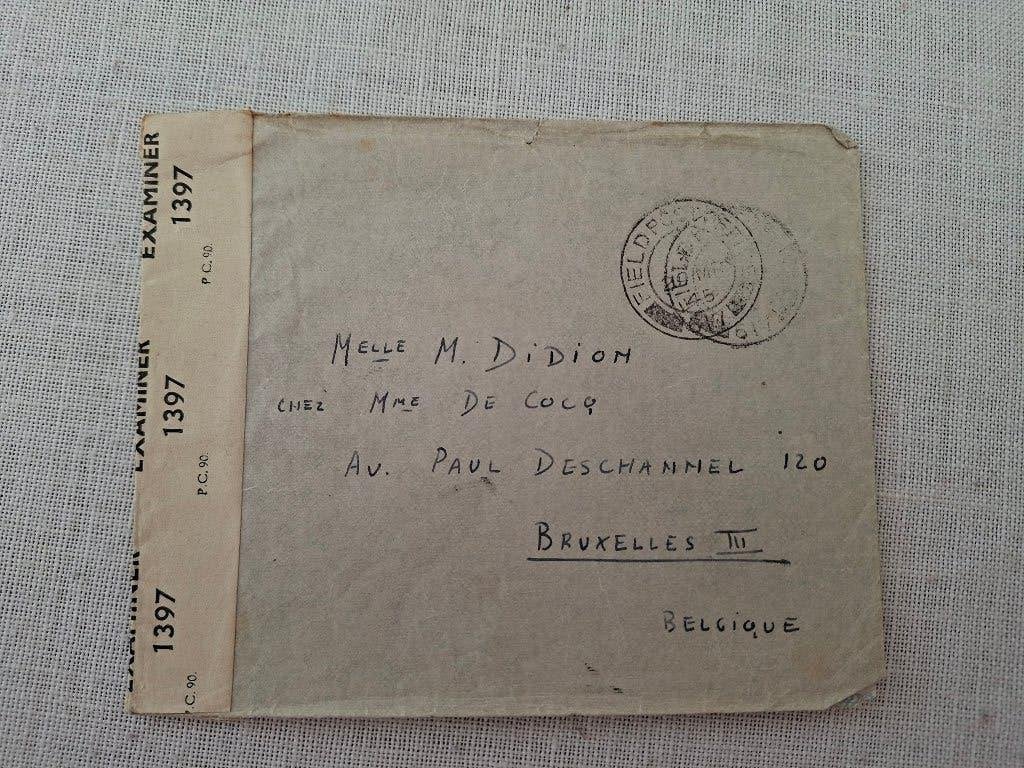 EXAMINER
1397
P.C. 90.
EXAMINER
1397
P.C. 90.
EXAMINER
1397
P.C. 90.
FIELD
45
MELLE M. DIDION
CHEZ MME DE COCQ
AV. PAUL DESCHANNEL 120
BRUXELLES III
BELGIQUE